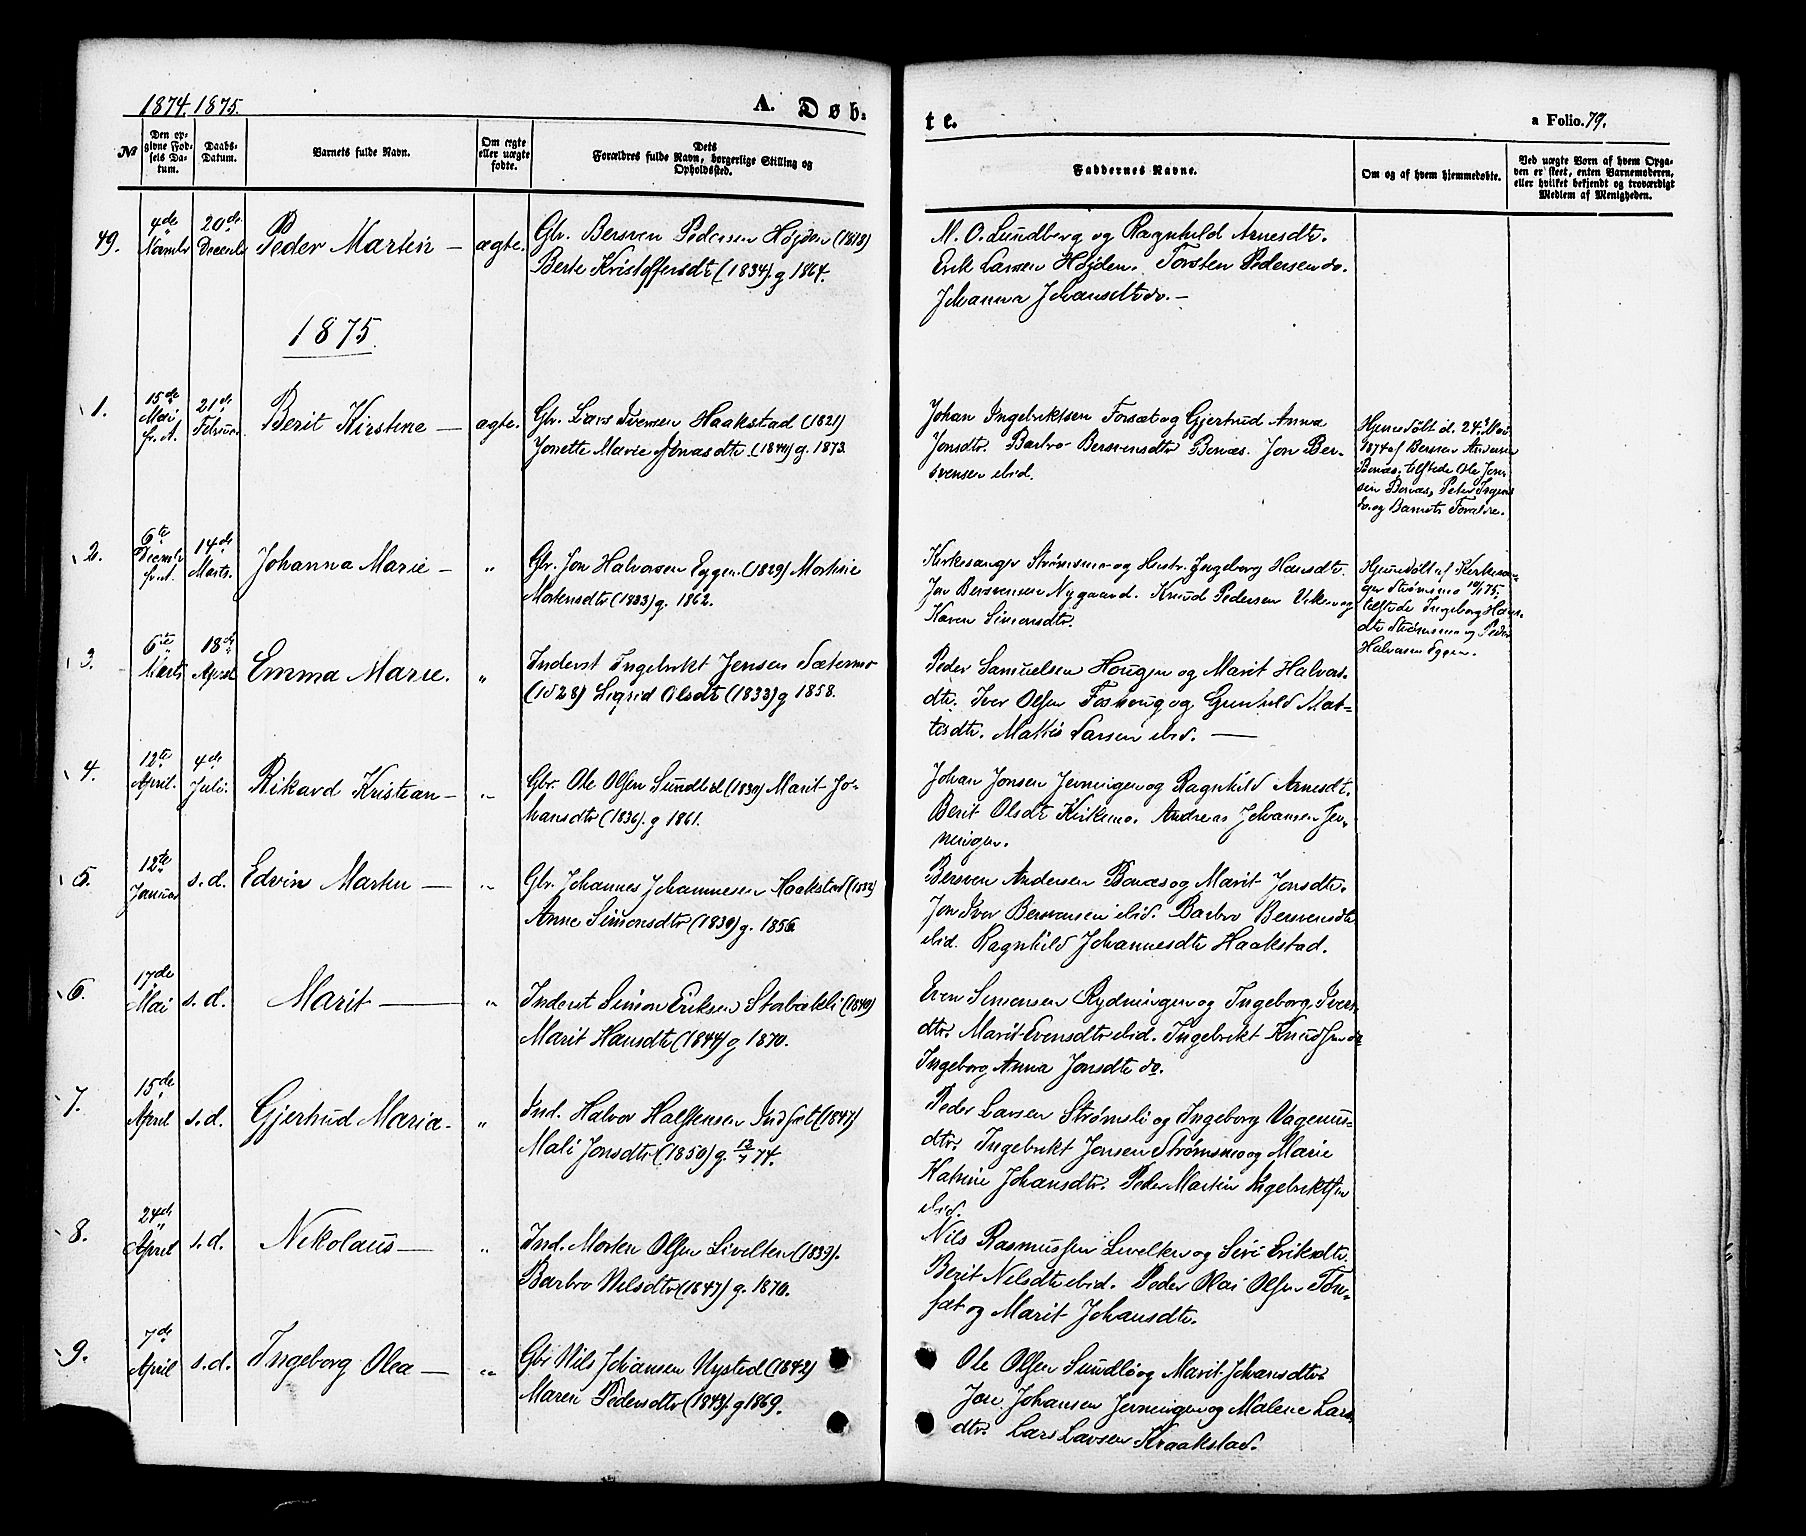 1874. 1875.
A. Døb-
te.
a Folio. 79.
№
Den op-
givne Fød-
sels Da-
tum.
Daabs-
Datum.
Barnets fulde Navn.
Om ægte
eller uægte
fødte.
Dets
Forældres fulde Navn, borgerlige Stilling og
Opholdssted.
Faddernes Navne.
Om og af hvem hjemmedøbte.
Ved uægte Børn af hvem Opga-
ven er skeet, enten Barnemoderen,
eller hvilket bekjendt og troværdigt
Medlem af Menigheden.
49.
4de
Novmbr
20de
Decembr
Peder Martin —
ægte.
Gbr. Bersven Pedersen Højden (1818)
Berte Kristoffersdt (1834). g 1864.
M. O. Lundberg og Ragnhild Arnesdtr.
Erik Larsen Højden. Torsten Pedersen do.
Johanna Johansdtr do. —
1875
1.
15de
Mai
fr. A.
21de
Februar
Berit Kirstine —
ægte.
Gbr. Lars Iversen Haakstad (1821)
Jonette Marie Jonasdtr. (1840) g. 1873.
Johan Ingebriktsen Forsæt og Gjertrud Anna
Jonsdtr. Barbro Bersvensdtr Bonæs. Jon Ber-
svensen ibid.
Hjemmedøbt d. 24. Mai
1874 af Bersven Andersen
Bonæs, tilstede Ole Jon-
sen Bonæs, Peter Ingens
do. og Barnets Forældre.
2.
6te
Decembr
fr. A.
14de
Marts.
Johanna Marie —
"
Gbr. Jon Halvorsen Eggen. (1829) Marthie
Mortensdtr (1833) g. 1862.
Kirkesanger Strømsmo og Hustr. Ingeborg Hansdtr.
Jon Bersvensen Nygaard. Knud Pedersen Viken og
Karen Simensdtr.
Hjemmedøbt af Kirkesan-
ger Strømsmo 10/1 75,
tilstede Ingeborg Hans-
dtr Strømsmo og Peder
Halvorsen Eggen.
3.
6te
Marts
18de
April
Emma Marie.
"
Inderst Ingebrikt Jensen Sætermo
(1828) Sigrid Olsdt (1833) g 1858.
Peder Samuelsen Hougen og Marit Halvors-
dtr. Iver Olsen Foshoug og Gunhild Mat-
tisdtr. Mattis Larsen ibid. —
4.
12te
April.
4de
Juli.
Rikard Kristian —
"
Gbr. Ole Olsen Sundlid (1830) Marit Jo-
hansdtr (1836). g 1861.
Johan Jonsen Jerningen og Ragnhild Arnesdt.
Berit Olsdt Kirkemo. Andreas Johansen Jer-
ningen.
5.
12te
Januar
s. d.
Edvin Martin —
"
Gbr. Johannes Johannesen Haakstad (1832)
Anne Simonsdtr (1830) g. 1856.
Bersven Andersen Bonæs og Marit Jonsdtr.
Jon Iver Bersvensen ibid. Barbro Bersvensdtr
ibid. Ragnhild Johannesdtr Haakstad.
6.
17de
Mai
s. d.
Marit —
"
Inderst Simon Eriksen Stabakli (1840)
Marit Hansdtr (1844) g 1870.
Even Simensen Rydningen og Ingeborg Ivers-
dtr. Marit Evensdtr ibid. Ingebrikt Knudsen do
Ingeborg Anna Jonsdtr do.
7.
15de
April
s. d.
Gjertrud Maria.
"
Ind. Halvor Halstensen Indset (1847)
Mali Jonsdtr (1850) g. 12/7 74.
Peder Larsen Strømsli og Ingeborg Vagnus-
dtr. Ingebrikt Jonsen Strømsmo og Marie
Katrine Johansdtr. Peder Martin Ingebriktsen
ibid.
8.
24de
April
s. d.
Nikolaus —
"
Ind. Morten Olsen Livelten (1839).
Barbro Nilsdtr (1847) g. 1870.
Nils Rasmussen Livelten og Siri Eriksdtr.
Berit Nilsdtr ibid. Peder Olai Olsen For-
sæt og Marit Johansdtr.
9.
7de
April
s. d.
Ingeborg Olea —
"
Gbr Nils Johansen Nysted (1842)
Maren Pedersdtr (1843). g 1869.
Ole Olsen Sundli og Marit Johansdtr
Jon Johansen Jerningen og Malene Lars-
dtr. Lars Larsen Kraakstad.